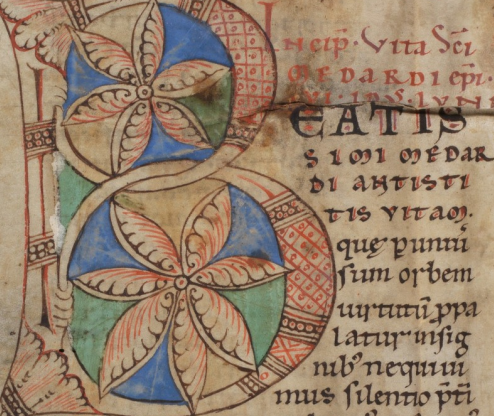 Incip̄. Vita Sc̄i
MEDARDI ep̄i.
VI. IDS̄. IVNI
BEATIS
SIMI MEDAR
DI ANTISTI
TIS VITAM.
quę p uniuū
sum orbem
uirtutū ꝓpa
latur insig
nib' nequiui
mus silentio p̄ti